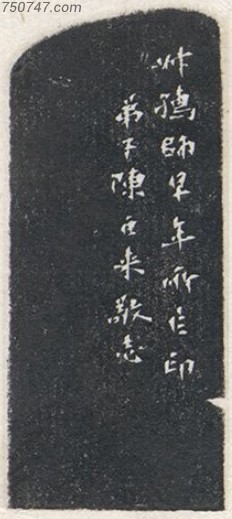 750747.com
叔孺師早年所作印
弟子陳巨来敬志